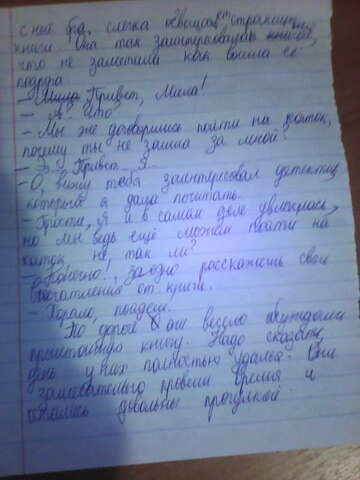 с ней бра, слегка освещая страницы
книги. Она так заинтересовалась книгой,
что не заметила как вошла её
подруга
- Привет, Мила!
- А? Что?
- Мы же договорились пойти на каток,
почему ты не зашла за мной?
- Э... Привет... Я...
- О, вижу тебя заинтересовал детектив,
который я дала почитать.
- Прости, я и в самом деле увлеклась,
но мы ведь ещё можем пойти на
каток, не так ли?
- Конечно!, заодно расскажешь свои
впечатления от книги.
- Хорошо, пойдём.
По дороге они весело обсуждали
прочитанную книгу. Надо сказать,
день у них полностью удался. Они
замечательно провели время и
остались довольны прогулкой.